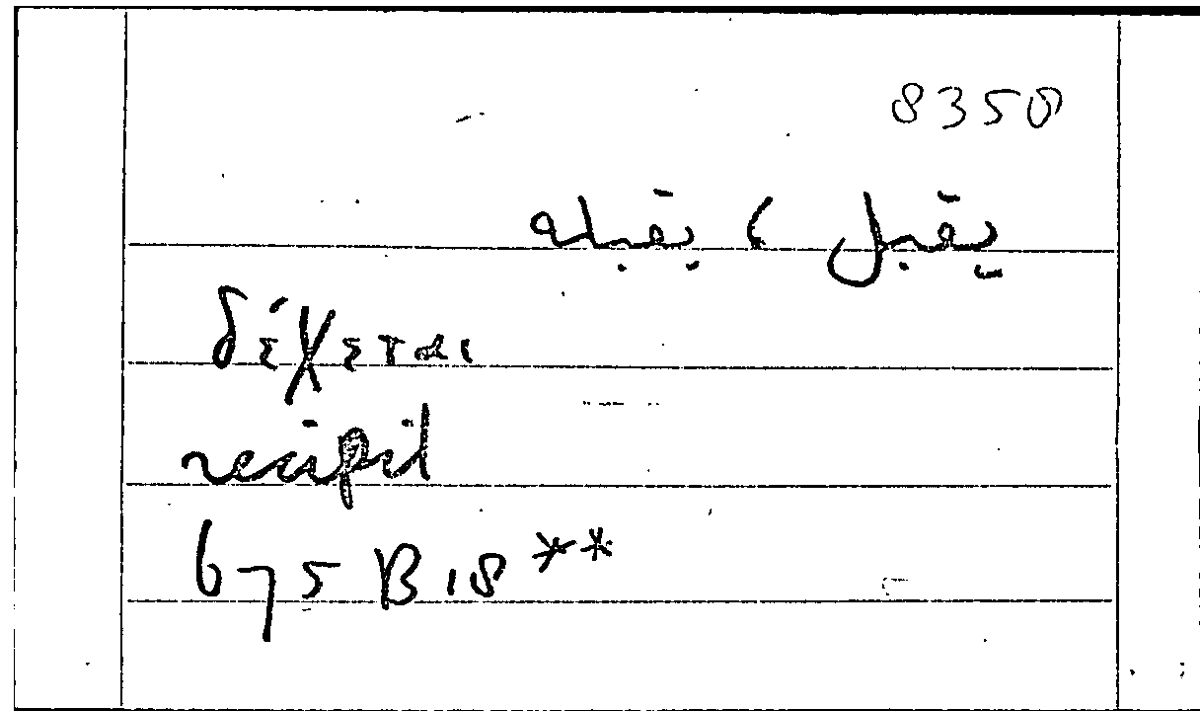 8350
يقبل ، يقبله
δέχεται
recipit
675 B 18 **